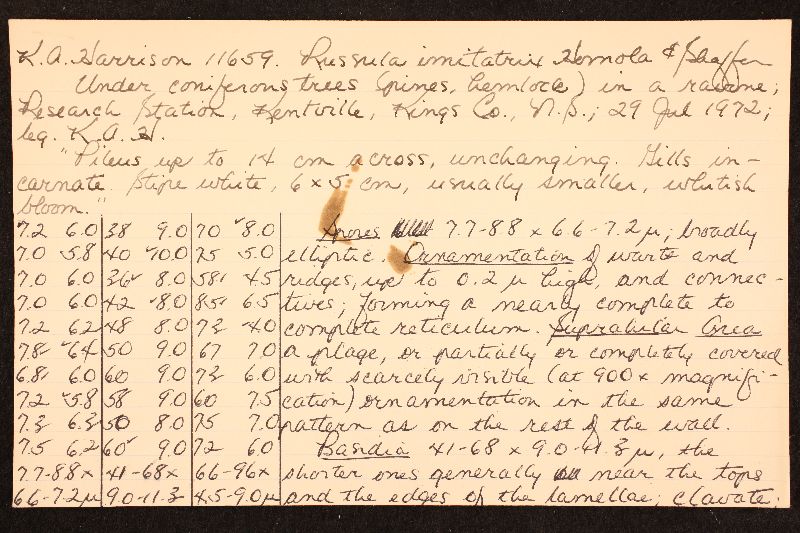 K.A. Harrison 11659. Russula imitatrix Homola & Shaffer
Under coniferous trees (pines, hemlock) in a ravine;
Research Station, Kentville, Kings Co., N.S.; 29 Jul 1972;
leg. K.A.H.
"Pileus up to 14 cm across, unchanging. Gills in-
carnate. Stipe white, 6 x 5 cm, usually smaller, whitish
bloom."
7.2 6.0 38 9.0 70 8.0 Spores 7.7-8.8 x 6.6-7.2 µ; broadly
7.0 5.8 40 10.0 75 5.0 elliptic. Ornamentation of warts and
7.0 6.0 36 8.0 58 4.5 ridges, up to 0.2 µ high, and connec-
7.0 6.0 42 8.0 85 6.5 tives; forming a nearly complete to
7.2 6.2 48 8.0 73 4.0 complete reticulum. Suprahilar area
7.8 6.4 50 9.0 67 7.0 a plage, or partially or completely covered
6.8 6.0 60 9.0 73 6.0 with scarcely visible (at 900 x magnifi-
7.2 5.8 58 9.0 60 7.5 cation) ornamentation in the same
7.3 6.3 50 8.0 75 7.0 pattern as on the rest of the wall.
7.5 6.2 60 9.0 72 6.0 Basidia 41-68 x 9.0-11.3 µ, the
7.7-8.8 x 41-68 x 66-96 x shorter ones generally near the tops
6.6-7.2 µ 9.0-11.3 4.5-9.0 µ and the edges of the lamellae; clavate;